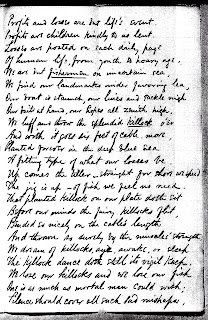 Profits and losses are but life's event.
Profits are children kindly to us lent.
Losses are posted on each daily page
Of human life, from youth to hoary age.
We are but fishermen on uncertain sea
We find our landmarks under favoring lea,
Our boat is staunch our lines and tackle nigh
Our baits at hand, our hopes all zenith high,
We luff and throw the splendid killock o'er
And worth it goes six feet of cable more
Planted forever in the deep blue sea
A fitting type of what our losses be
Up comes the killer straight for shore we speed
The jig is up - of fish we feel no need
That planted killock on our plate doth sit
Before our minds the fairy killocks flit
Banded so nicely on the cable's length
And thrown so surely by the muscles' strength
We dream of killocks and awake, or sleep
The killock dance doth still its vigil keep.
We lose our killocks and we lose our fish
And is as much as mortal man could wish;
Silence should cover all such sad mishaps,